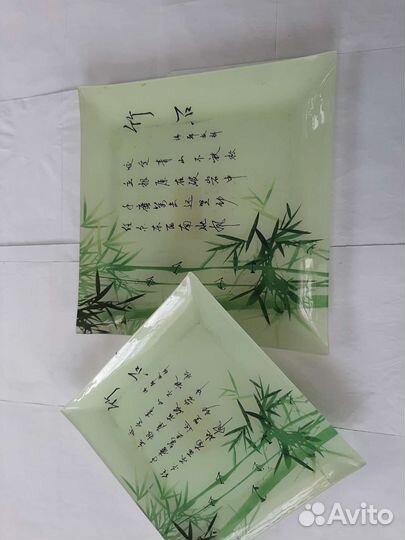 竹石
咬定青山不放松
立根原在破岩中
千磨萬击还坚劲
任尔东西南北风
竹石
咬定青山不放松
立根原在破岩中
千磨萬击还坚劲
任尔东西南北风
Avito